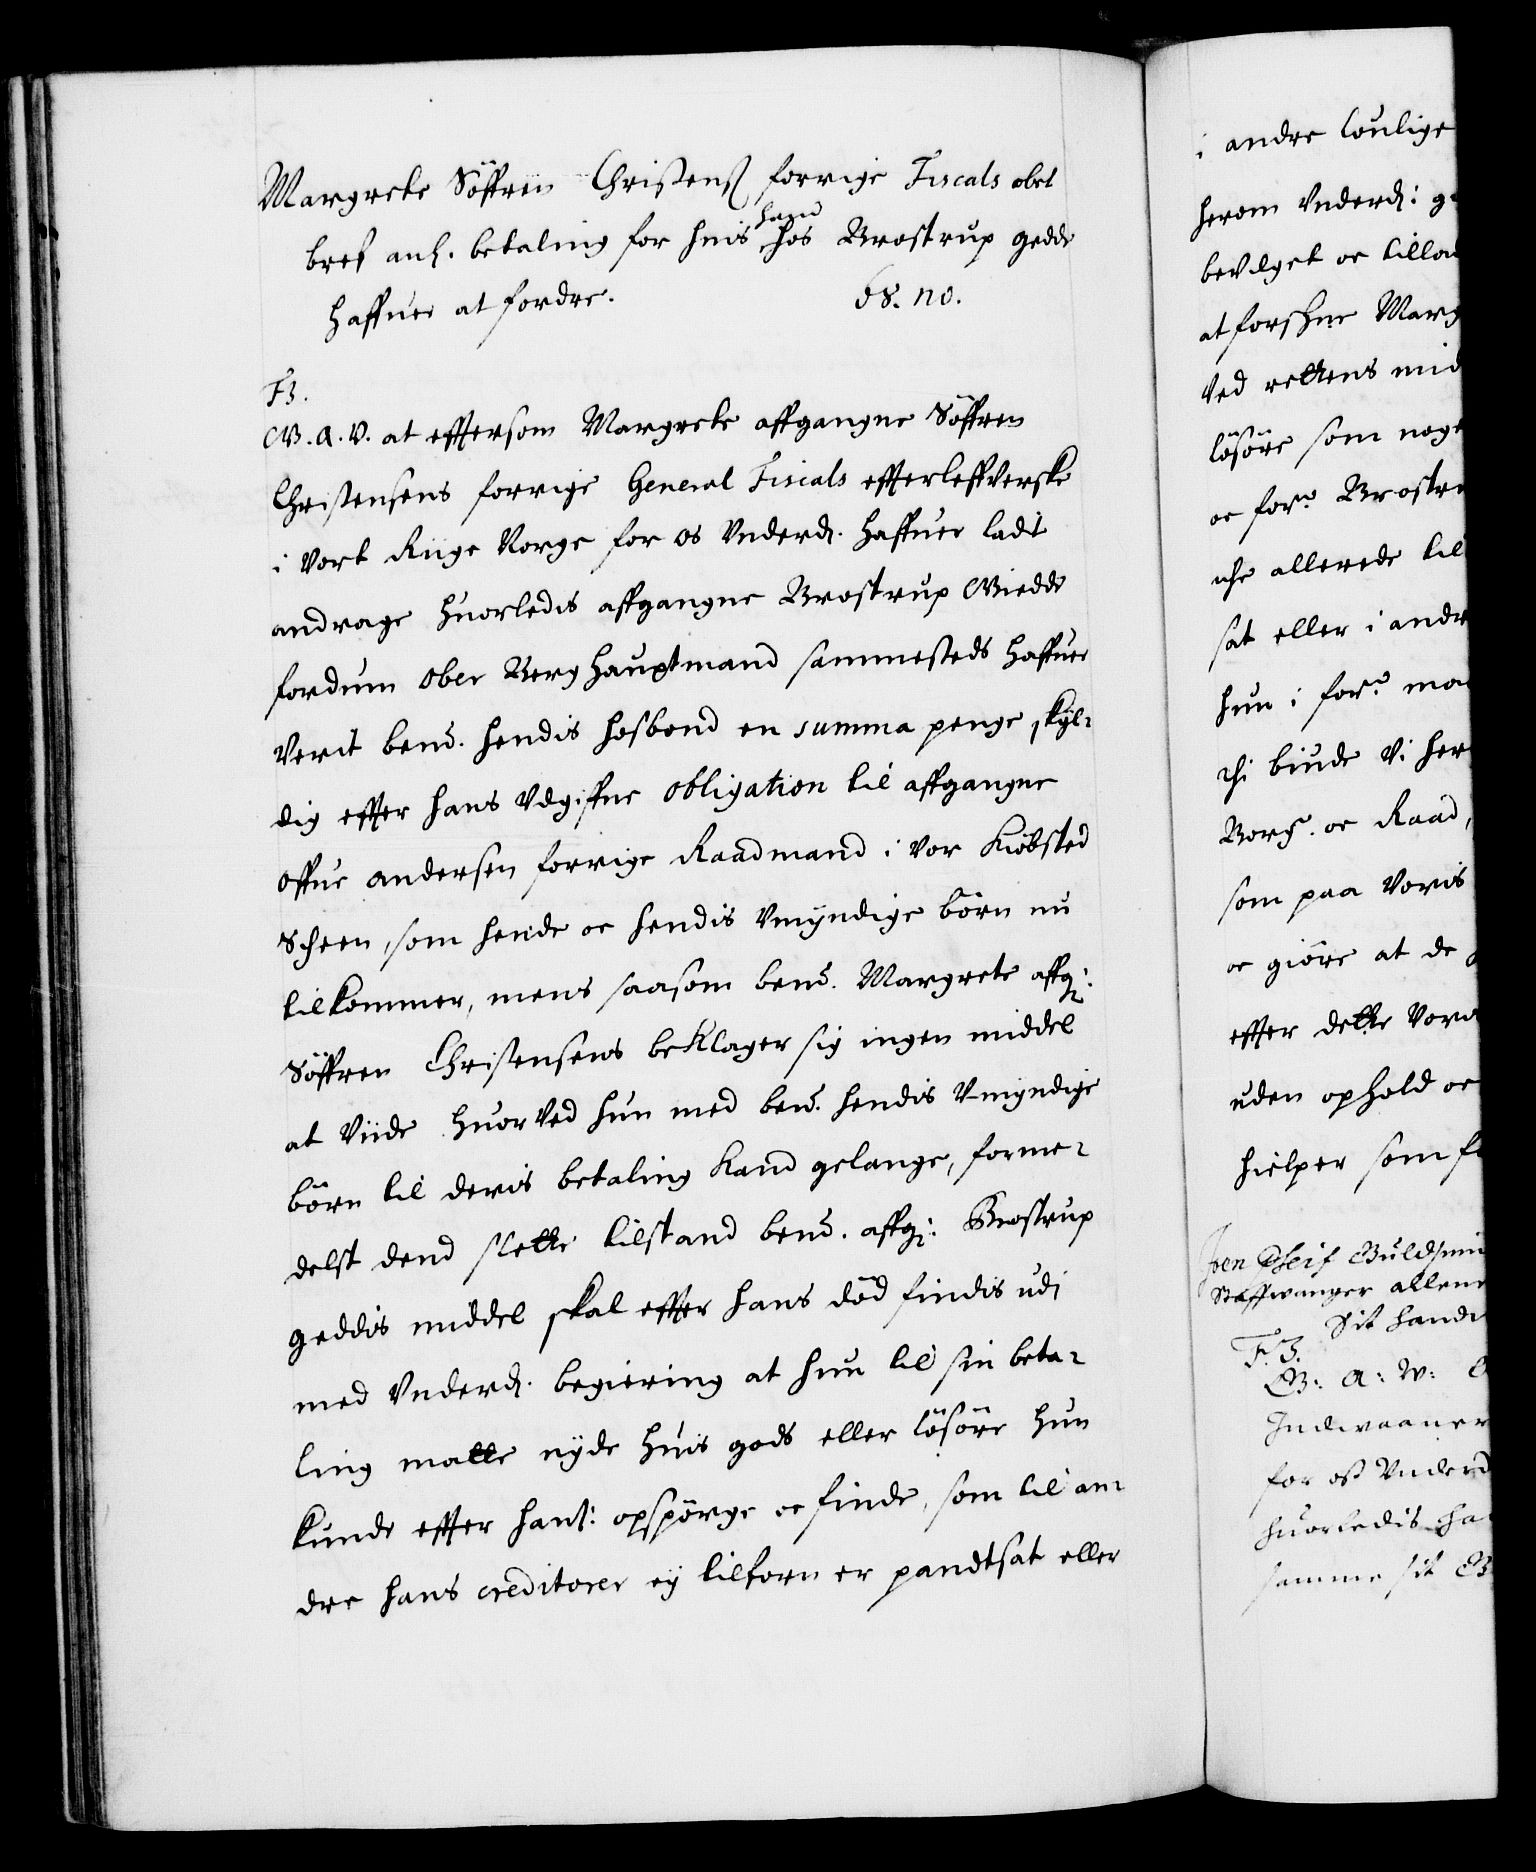 Margrete Söffren Christens forrige Fiscals obet
bref anl. betaling for huis hand hos Brostrup gedde
haffuer at fordre. 68. no.
F3.
G. A. V. at effttersom Margrete affgangne Söffren
Christensens forrige General Fiscals effterleffverske
i Vort Riige Norge for os Vnderd. haffuer ladit
andrage huorledis affgangne Brostrup Giedde
fordum Ober Berghauptmand sammesteds haffuer
Verit bend. hendis hosbond en summa penge skyl-
dig effter hans Vdgiffne obligation til affgangne
Offue andersen forrige Raadmand i Vor Kiöbsted
Scheen, som hende oc hendis Vmyndige börn nu
tilkommer, mens saasom bend. Margrete affg:
Söffren Christensens beklager sig ingen middel
at Viide huorVed hun med bend. hendis Vmyndige
börn til deris betaling kand gelange, forme-
delst dend slette tilstand bend. affg: Brostrup
geddis middel skal effter hans död findis udi
med Vnderd. begiering at hun til sin beta-
ling motte nyde huis gods eller lösöre hun
kunde effter hans: opspörge oc finde, som til an-
dre hans creditorer ey tilforn er pandtsat eller
i andre loulige
herom Vnderd: g
bevilget oc tillad
at forshne Marg
Ved rettens mid
lösöre som noge
oc for. Brostru
iche allerede til
sat eller i andr
hun i for. ma
thi biude Vi her
Borg. oc Raad,
som paa Voris
oc giöre at de
effter dette Vor
uden ophold oc
hielper som f
Joen Guldsmi
Staffwanger allene
Sit hand
F. 3.
G: A: W:
Indwaaner
for oss Vnderd
huorledis ha
samme sit B